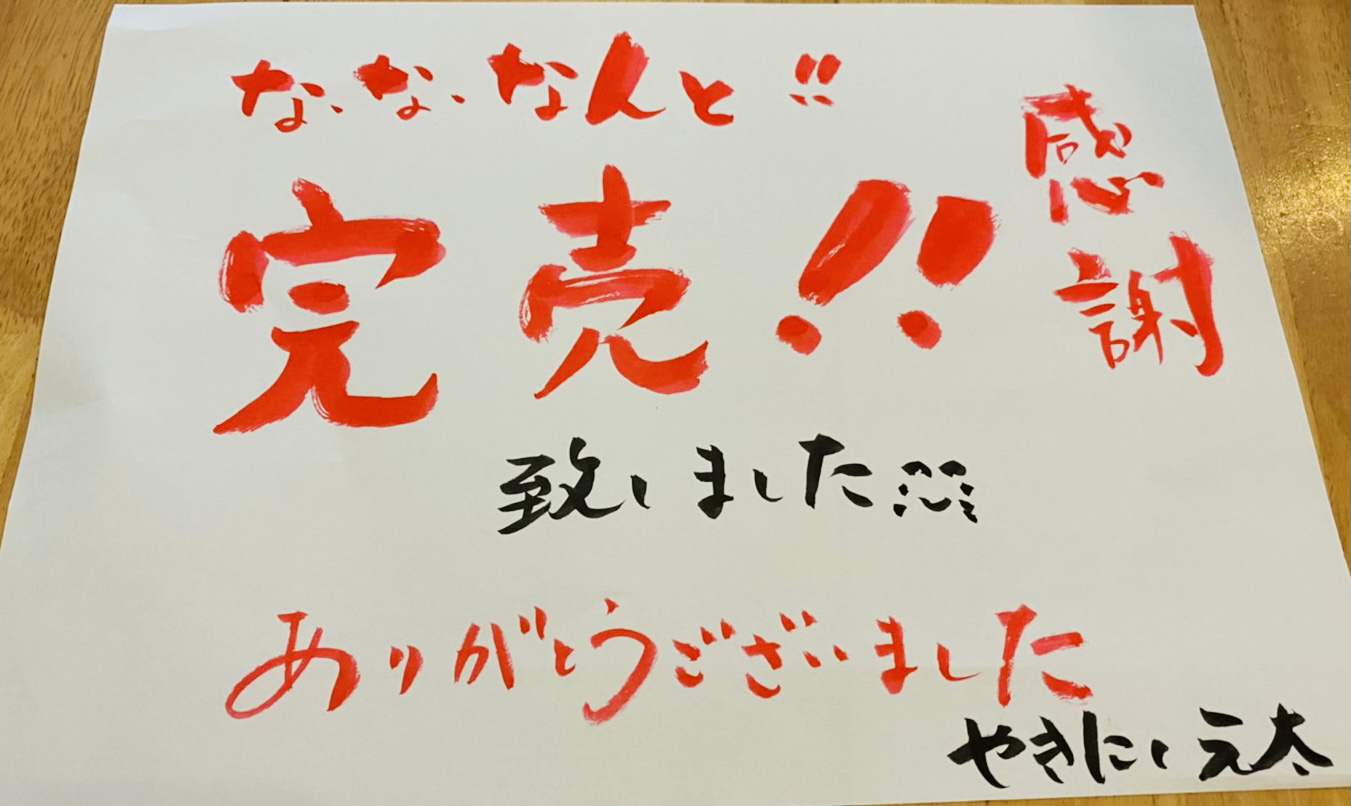 な、な、なんと!!
感謝
完売!!
致しました
ありがとうございました
やきにく元太